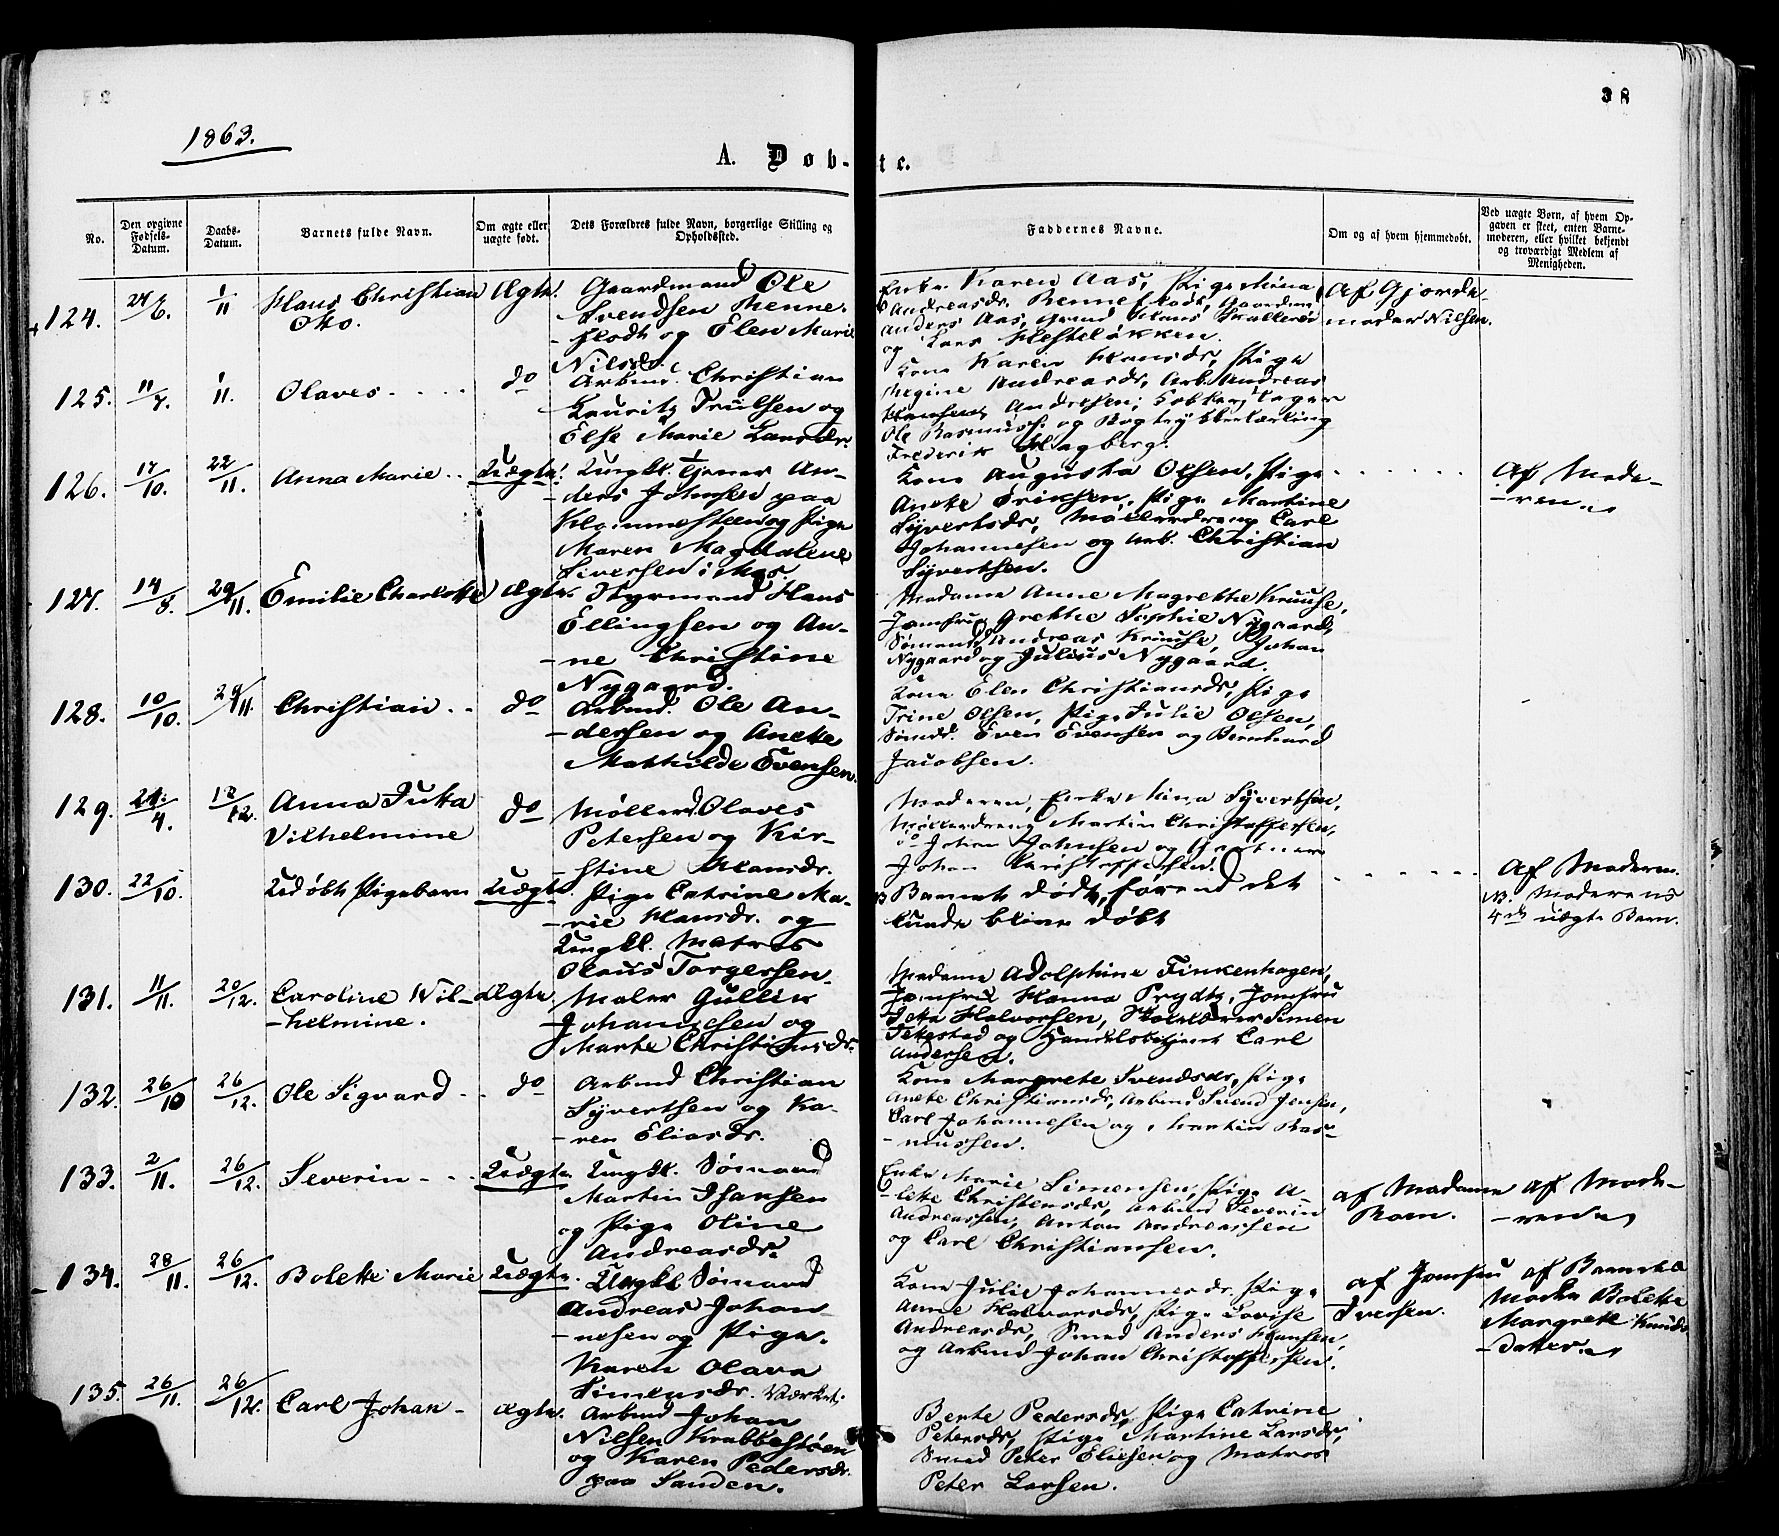 38
1863.
A. Döb-
te.
No.
Den opgivne Fødsels-Datum.
Daabs-Datum.
Barnets fulde Navn.
Om ægte eller uægte født.
Dets Forældres fulde Navn, borgerlige Stilling og Opholdssted.
Faddernes Navne.
Om og af hvem hjemmedøbt.
Ved uægte Børn, af hvem Opgaven er skeet, enten Barnemoderen, eller hvilket bekjendt og troværdigt Medlem af Menigheden.
124.
24/6.
1/11
Hans Christian
Otto.
Ægte.
Gaardmand Ole
Svendsen Renne-
-flodt og Elen Marie
Nilsd.
Enke Karen Aas, Pige Mina
Andreasdr. Renneflodt, Gaardm.
Anders Aas, Hans
og Lars Hesteløkken.
Af Gjorde-
moder Nilsen.
125.
11/7.
1/11.
Olaves
do
Arbmd. Christian
Lauritz Truelsen og
Else Marie Larsdr.
Kone Karen Hansdr, Pige
Regine Andreasdr, Arb. Andreas
Hansen, Andersen,
Ole Rasmuss. og Bogtrykkerlærling
Frederik Hagberg.
126.
17/10.
22/11.
Anna Marie
Uægte.
Ungkl. Tjener An-
-ders Johnsen paa
Klommesteen og Pige
Maren Magdalene
Siversen i Mos.
Kone Augusta Olsen, Pige
Anette Eriksen, Pige Martine
Syvertsdr, Møllerdreng Carl
Johannesen og Arb. Christian
Syvertsen.
Af Mode-
-ren.
127.
14/8.
29/11.
Emilie Charlotte
Ægte.
Styrmand Hans
Ellingsen og An-
-ne Christine
Nygaard.
Madame Anne Magrethe Kruuse,
Jomfru Grethe Sophie Nygaard,
Sømænd Andreas Kruuse, Johan
Nygaard og Julius Nygaard.
128.
10/10.
29/11.
Christian
do
Arbmd. Ole An-
-dersen og Anette
Mathilde Evensen.
Kone Elen Christiansdr, Pige
Trine Olsen, Pige Julie Olsen,
Sømd. Even Evensen og Bernhard
Jacobsen.
129.
24/4.
12.
Anna Jutta
Vilhelmine
do
Møller Olaves
Petersen og Kir-
-stine Hansdr.
Moderen, Enke Mina Syvertsen,
Møllerdreng Martin Christoffersen,
do Johan Johnsen og Gartner
Johan Christoffersen.
130.
22/10.
Udøbt Pigebarn
Uægte.
Pige Catrine Ma-
-rie Hansdr. og
Ungkl. Matros
Olaus Torgersen.
Barnet døde, førend det
kunde blive døbt
Af Moderen.
NB. Moderens
4de uægte Barn.
131.
11/11.
20/12.
Caroline Wil-
-helmine.
Ægte.
Maler Gullik
Johannesen og
Marte Christiansdr.
Madame Adolphine Finkenhagen,
Jomfru Hanna Prydtz, Jomfru
Jetta Halvorsen, Skolelærer Simen
Tekestad og Handelsbetjent Carl
Andersen.
132.
26/10
26/12.
Ole Sigvard
do
Arbmd Christian
Syvertsen og Ka-
-ren Eliasdr.
Kone Margrete Svendsdr, Pige
Anette Christiansdr, Arbmd Svend Jensen,
Carl Johannesen og Martin Ras-
-mussen.
133.
2/11.
26/12.
Severin
Uægte
Ungkl. Sømand
Martin Isaksen
og Pige Oline
Andreasdr.
Enke Marie Simensen, Pige A-
-lette Christensdr, Arbmd Severin
Andreassen, Anton Andreassen
og Carl Christiansen.
af Madame
Rom.
af Mode-
-ren
134.
28/11.
26/12.
Bolette Marie
Uægte.
Ungkl. Sømand
Andreas Johan-
-nesen og Pige
Karen Olava
Simensdr. Værket.
Kone Julie Johannesdr, Pige
Anne Halvorsdr, Pige Lovise
Andreasdr, Smed Anders Hansen
og Arbmd Johan Christoffersen.
af Jomfru
Iversen.
af Barnets
Moder Bolette
Margrete Knuds-
-datter.
135.
26/11.
26/12.
Carl Johan
Ægte.
Arbmd Johan
Nilsen Krabbestøen
og Karen Pedersdr.
paa Sanden.
Bente Pedersdr, Pige Catrine
Petersdr, Pige Martine Larsdr,
Smed Peter Eliesen og Matros
Peter Larsen.